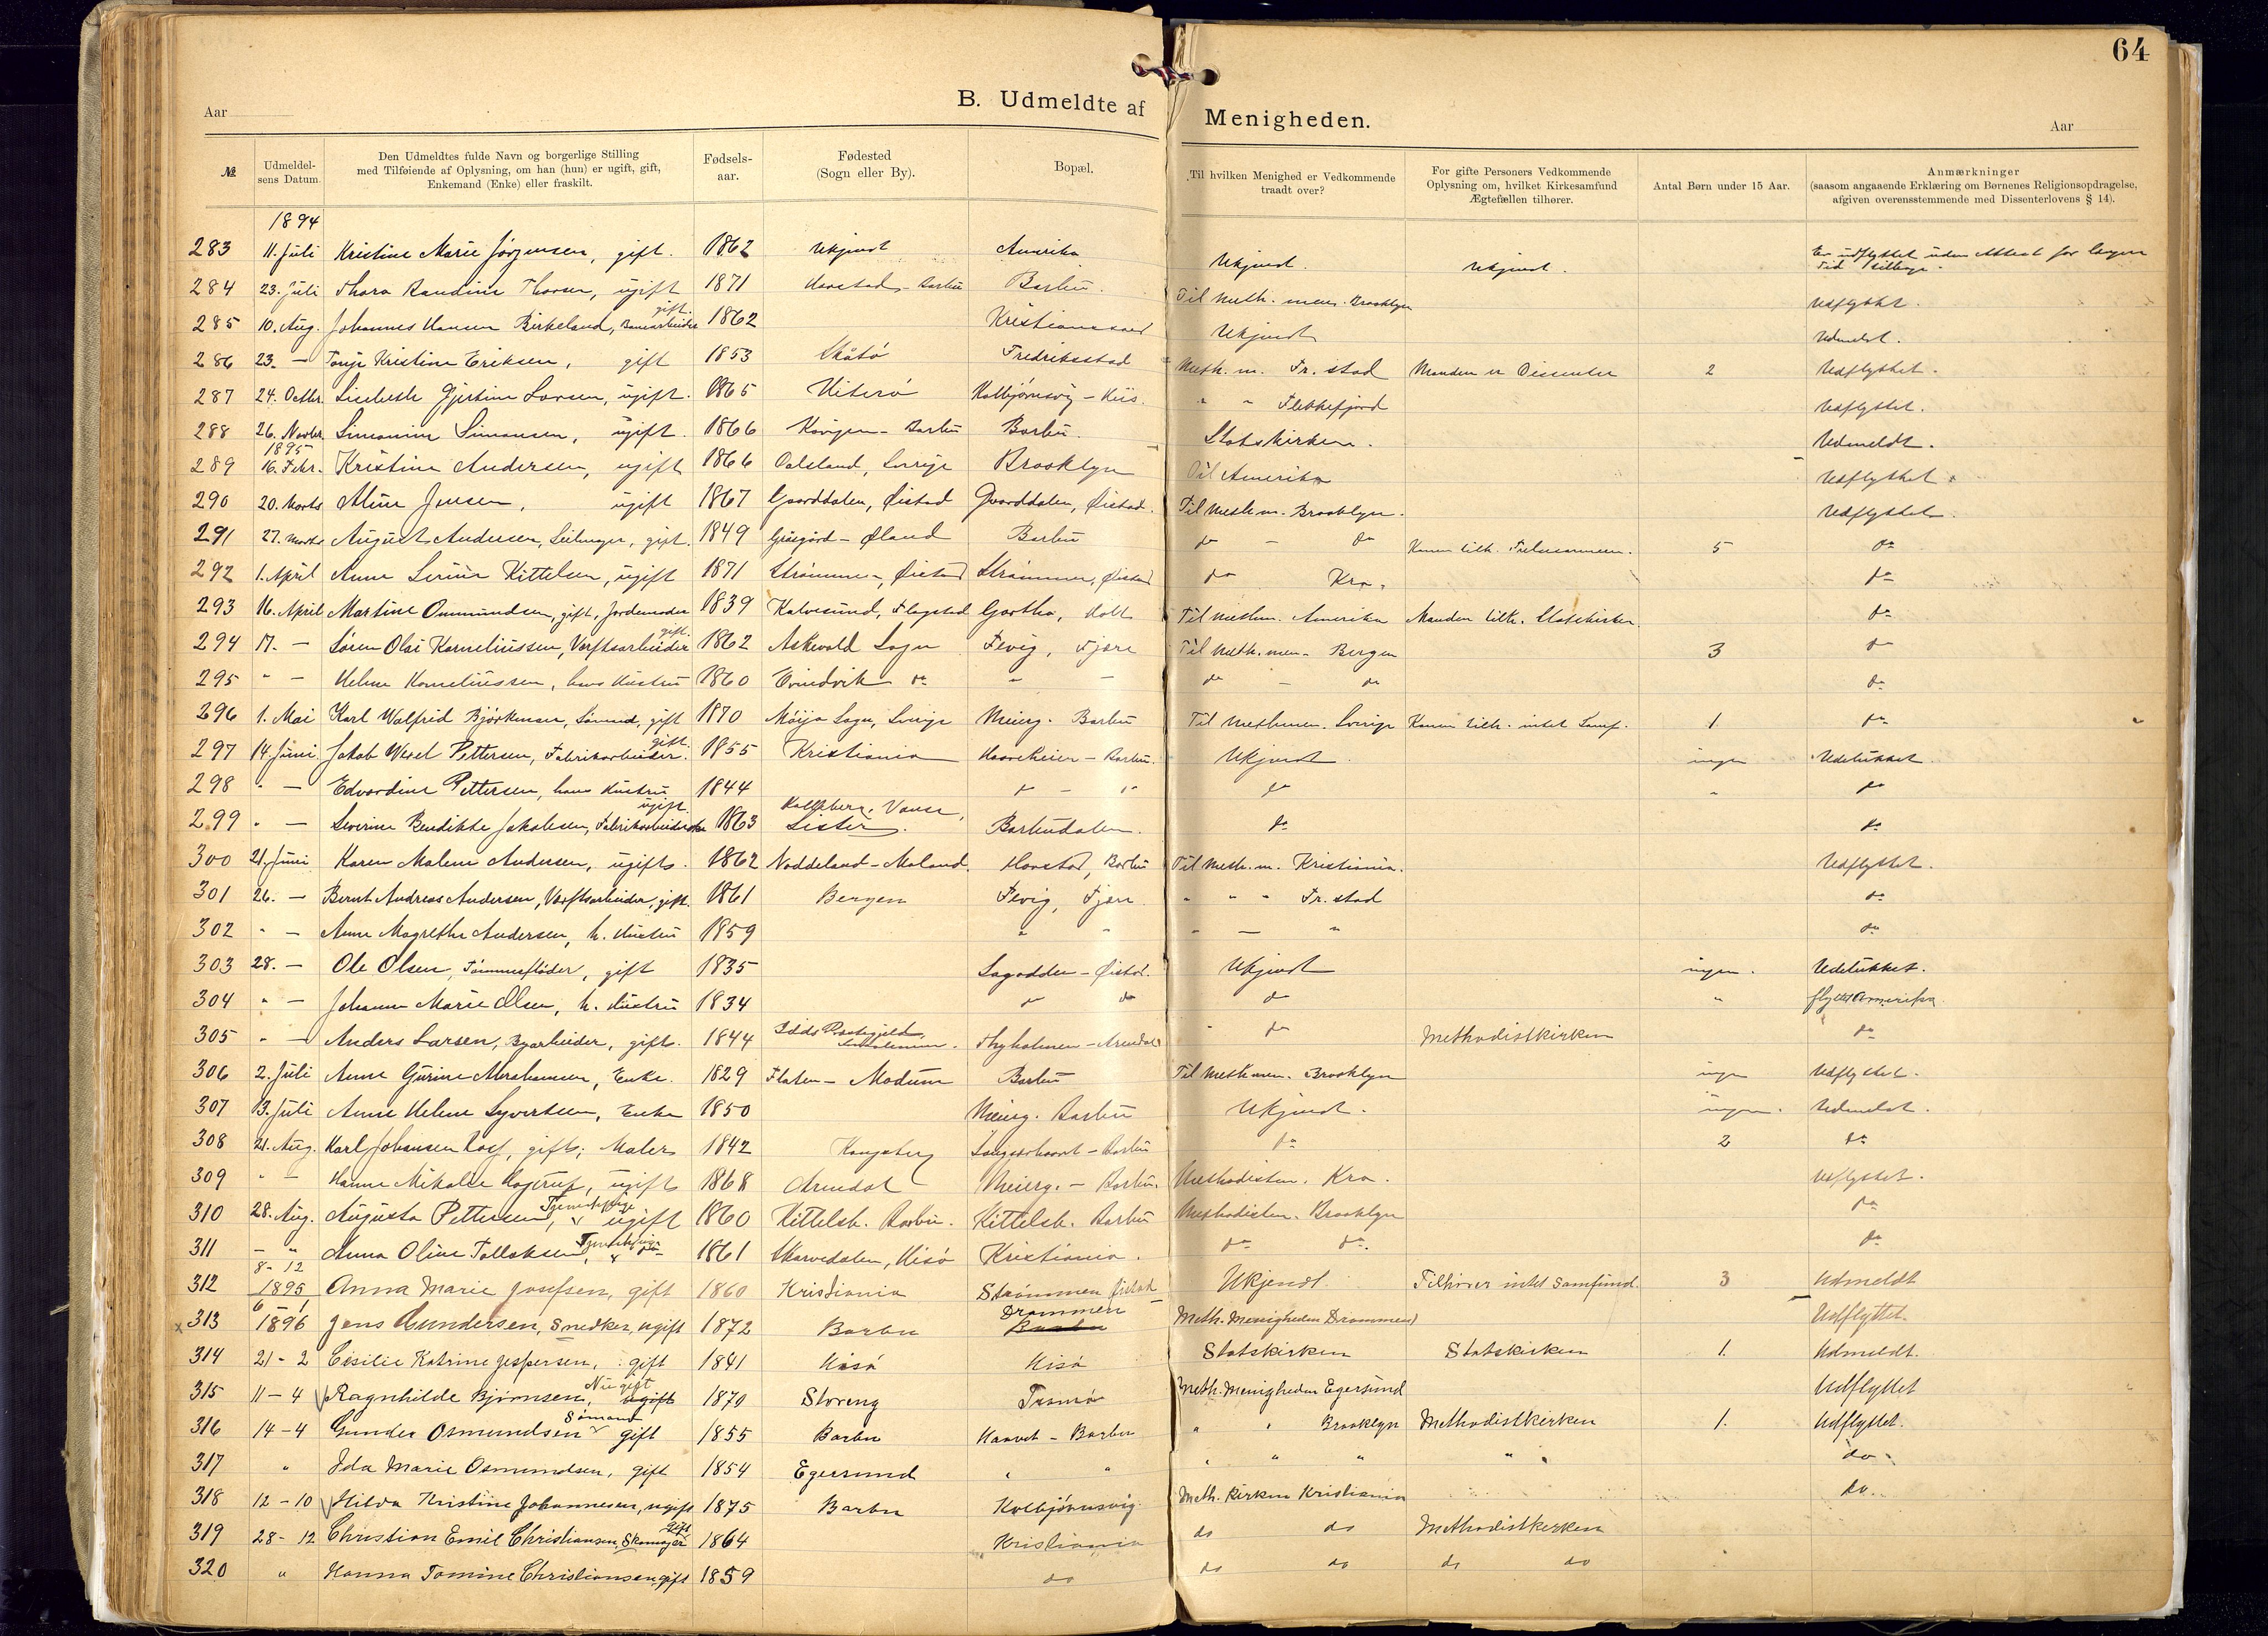 64
B. Udmeldte af Menigheden.
Aar
Aar
№ Udmeldelsens Datum. Den Udmeldtes fulde Navn og borgerlige Stilling med Tilføiende af Oplysning, om han (hun) er ugift, gift, Enkemand (Enke) eller fraskilt. Fødselsaar. Fødested (Sogn eller By). Bopæl. Til hvilken Menighed er Vedkommende traadt over? For gifte Personers Vedkommende Oplysning om, hvilket Kirkesamfund Ægtefællen tilhører. Antal Børn under 15 Aar. Anmærkninger (saasom angaaende Erklæring om Børnenes Religionsopdragelse, afgiven overensstemmende med Dissenterlovens § 14).
1894
283 11. Juli Kristine Marie Jörgensen, gift. 1862 Ukjendt Amerika Ukjendt. Ukjendt. Er udflyttet uden Attest for længere Tid tilbage.
284 23. Juli Thora Randine Thorsen, ugift 1871 Harstad - Barbu Barbu. Til Meth. men. Brooklyn Udflyttet.
285 10. Aug. Johannes Hansen Birkeland, Banearbeider gift. 1862 Kristianssand Ukjendt Udmeldt.
286 23. — Tonje Kristine Eriksen, gift 1853 Skåtö Fredriksstad Meth. m. Fr. stad Manden er Dissenter 2 Udflyttet.
287 24. Octbr. Lisebeth Gjertine Larsen, ugift. 1865 Hiterö Kolbjörnsvig - His. " " Flekkefjord Udflyttet.
288 26. Novbr. Simonine Simonsen, ugift. 1866 Barbu Barbu. Statskirken. Udmeldt.
1895
289 16. Febr. Kristine Andersen, ugift 1866 Dalsland, Sverige Brooklyn Til Amerika Udflyttet.
290 20. Marts Aline Jensen, ugift 1867 Gaarddalen, Øistad Gaarddalen, Øistad. Til Meth m. Brooklyn. Udflyttet.
291 27. Marts August Andersen, gift. 1849 Gräsgård - Øland Barbu do - do Konen tilh. Frelsesarmeen. 5 do
292 1. April Anne Serine Kittelsen, ugift 1871 Strömmen, Øiestad Strömmen, Øiestad do Kra. do
293 16. April Martine Ommundsen, gift, Jordemoder 1839 Kalvesund, Flagstad Gartha, Holt Til Meth m. Amerika Manden tilh. Statskirken. do
294 17. — Sören Olai Korneliussen, Verftsarbeider gift. 1862 Askevold Sogn Fevig, Fjære Til Meth. men. Bergen 3 do
295 " — Helene Korneliussen, hans Hustru 1860 Evindvik do " — do - do do
296 1. Mai Karl Walfrid Björkman, Sömand, gift 1870 Möija Sogn, Sverige Meierg. Barbu Til Meth men. Sverige Konen tilh. intet Samf. 1 do
297 14. Juni Jakob Wexel Pettersen, Fabrikarbeider. gift. 1855 Kristiania Barbu. Ukjendt. ingen Udelukket.
298 " — Edvardine Pettersen, hans Hustru 1844 do - do do " do
299 " — Severine Bendikte Jakobsen, Fabrikarbeiderske ugift 1863 Vanse, Lister. Barbudalen. do do
300 21. Juni Karen Malene Andersen, ugift. 1862 Noddeland - Moland. Havstad, Barbu Til Meth. m. Kristiania. Udflyttet.
301 26. — Bernt Andreas Andersen, Værftsarbeider, gift. 1861 Bergen Fevig, Fjære " " " Fr. stad do
302 " — Anne Magrethe Andersen, h. Hustru 1859 " " " — " do
303 28. — Ole Olsen, Tömmerflöder, gift 1835 Sagodden - Øistad. Ukjendt ingen. Udelukket.
304 " — Johanne Marie Olsen, h. Hustru 1834 do do do " flyttet Amerika
305 " — Anders Larsen, Byarbeider, gift. 1844 Idds Præstegjeld Thyholmen - Arendal " do Methodistkirken do
306 2. Juli Anne Gurine Abrahamsen, Enke. 1829 Flaten - Modum Barbu Til Meth men. Brooklyn ingen Udflyttet.
307 13. Juli Anne Helene Syvertsen, Enke 1850 Meierg. Barbu Ukjendt. ingen. Udmeldt.
308 21. Aug. Karl Johansen, gift; Maler 1842 Kongsberg Barbu do 2 do
309 " — Hanne Mikaline Hagerup, ugift 1868 Arendal Meierg. - Barbu. Methodistm. Kra. Udflyttet.
310 28. Aug. Augusta Pettersen, Tjenestepige ugift 1860 Kittelsb. Barbu. Kittelsb. Barbu Methodistm. Brooklyn do
311 — " Anna Oline Tallaksen, Tjenestepige " do 1861 Skarvedalen, Hisö Kristiania. do do. do
312 8-12 1895 Anna Marie Josefsen, gift 1860 Kristiania Strömmen Øistad Ukjendt Tilhører intet Samfund. 3 Udmeldt
x 313 6-1 1896 Jens Gundersen, Snedker, ugift 1872 Barbu Drammen Barbu Meth. Menigheden Drammen Udflyttet.
314 21-2 Cesilie Katrine Jespersen, gift 1841 Hisö Hisö Statskirken Statskirken 1. Udmeldt.
315 11-4 Ragnhilde Bjørnsen, Nu gift ugift 1870 Storeng Tromö Meth. Menigheden Egersund Udflyttet
316 14-4 Gunder Osmundsen Sömand gift 1855 Barbu Haavet - Barbu " " Brooklyn Methodistkirken 1. Udflyttet.
317 " Ida Marie Osmundsen, gift 1854 Egersund " " " " " " " do.
318 12-10 Hilda Kristine Johannesen, ugift 1875 Barbu Kolbjörnsvig. Meth. Kirken Kristiania do.
319 28-12 Christian Emil Christiansen, Skomager gift 1864 Kristiania do do Methodistkirken
320 " Hanna Tomine Christiansen, gift 1859 do do do do do